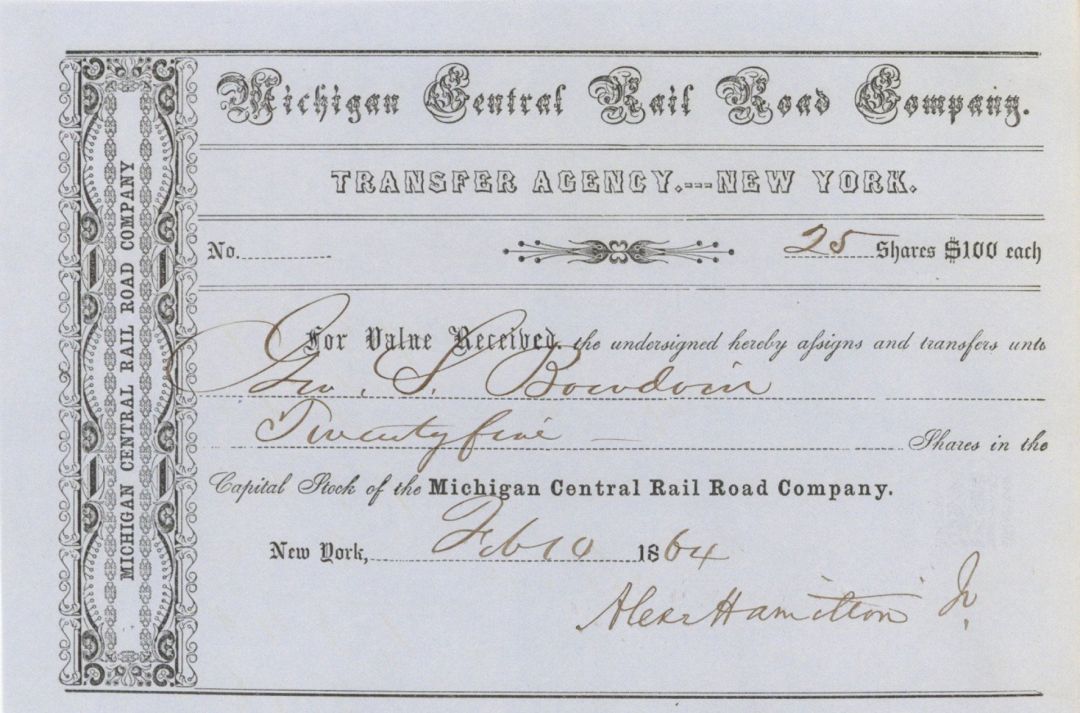 Michigan Central Rail Road Company.
TRANSFER AGENCY.---NEW YORK.
No. 25 Shares $100 each
For Value Received, the undersigned hereby assigns and transfers unto
Geo. S. Bowdoin
Twentyfive — Shares in the
Capital Stock of the Michigan Central Rail Road Company.
New York, Feb 10 1864
Alexr Hamilton Jr.
MICHIGAN CENTRAL RAIL ROAD COMPANY